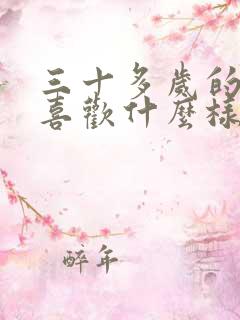 三十多歲的
喜歡什麼樣
醉年